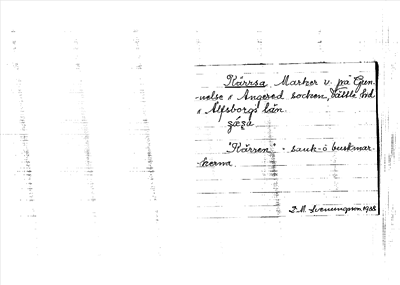 Kärrsa Marker v. på Gun-
nelse i Angered socken, Vättle hd
i Älfsborgs län.
"Kärren" - sank- o buskmar-
kerna.
D.M. Svenungsson 1938